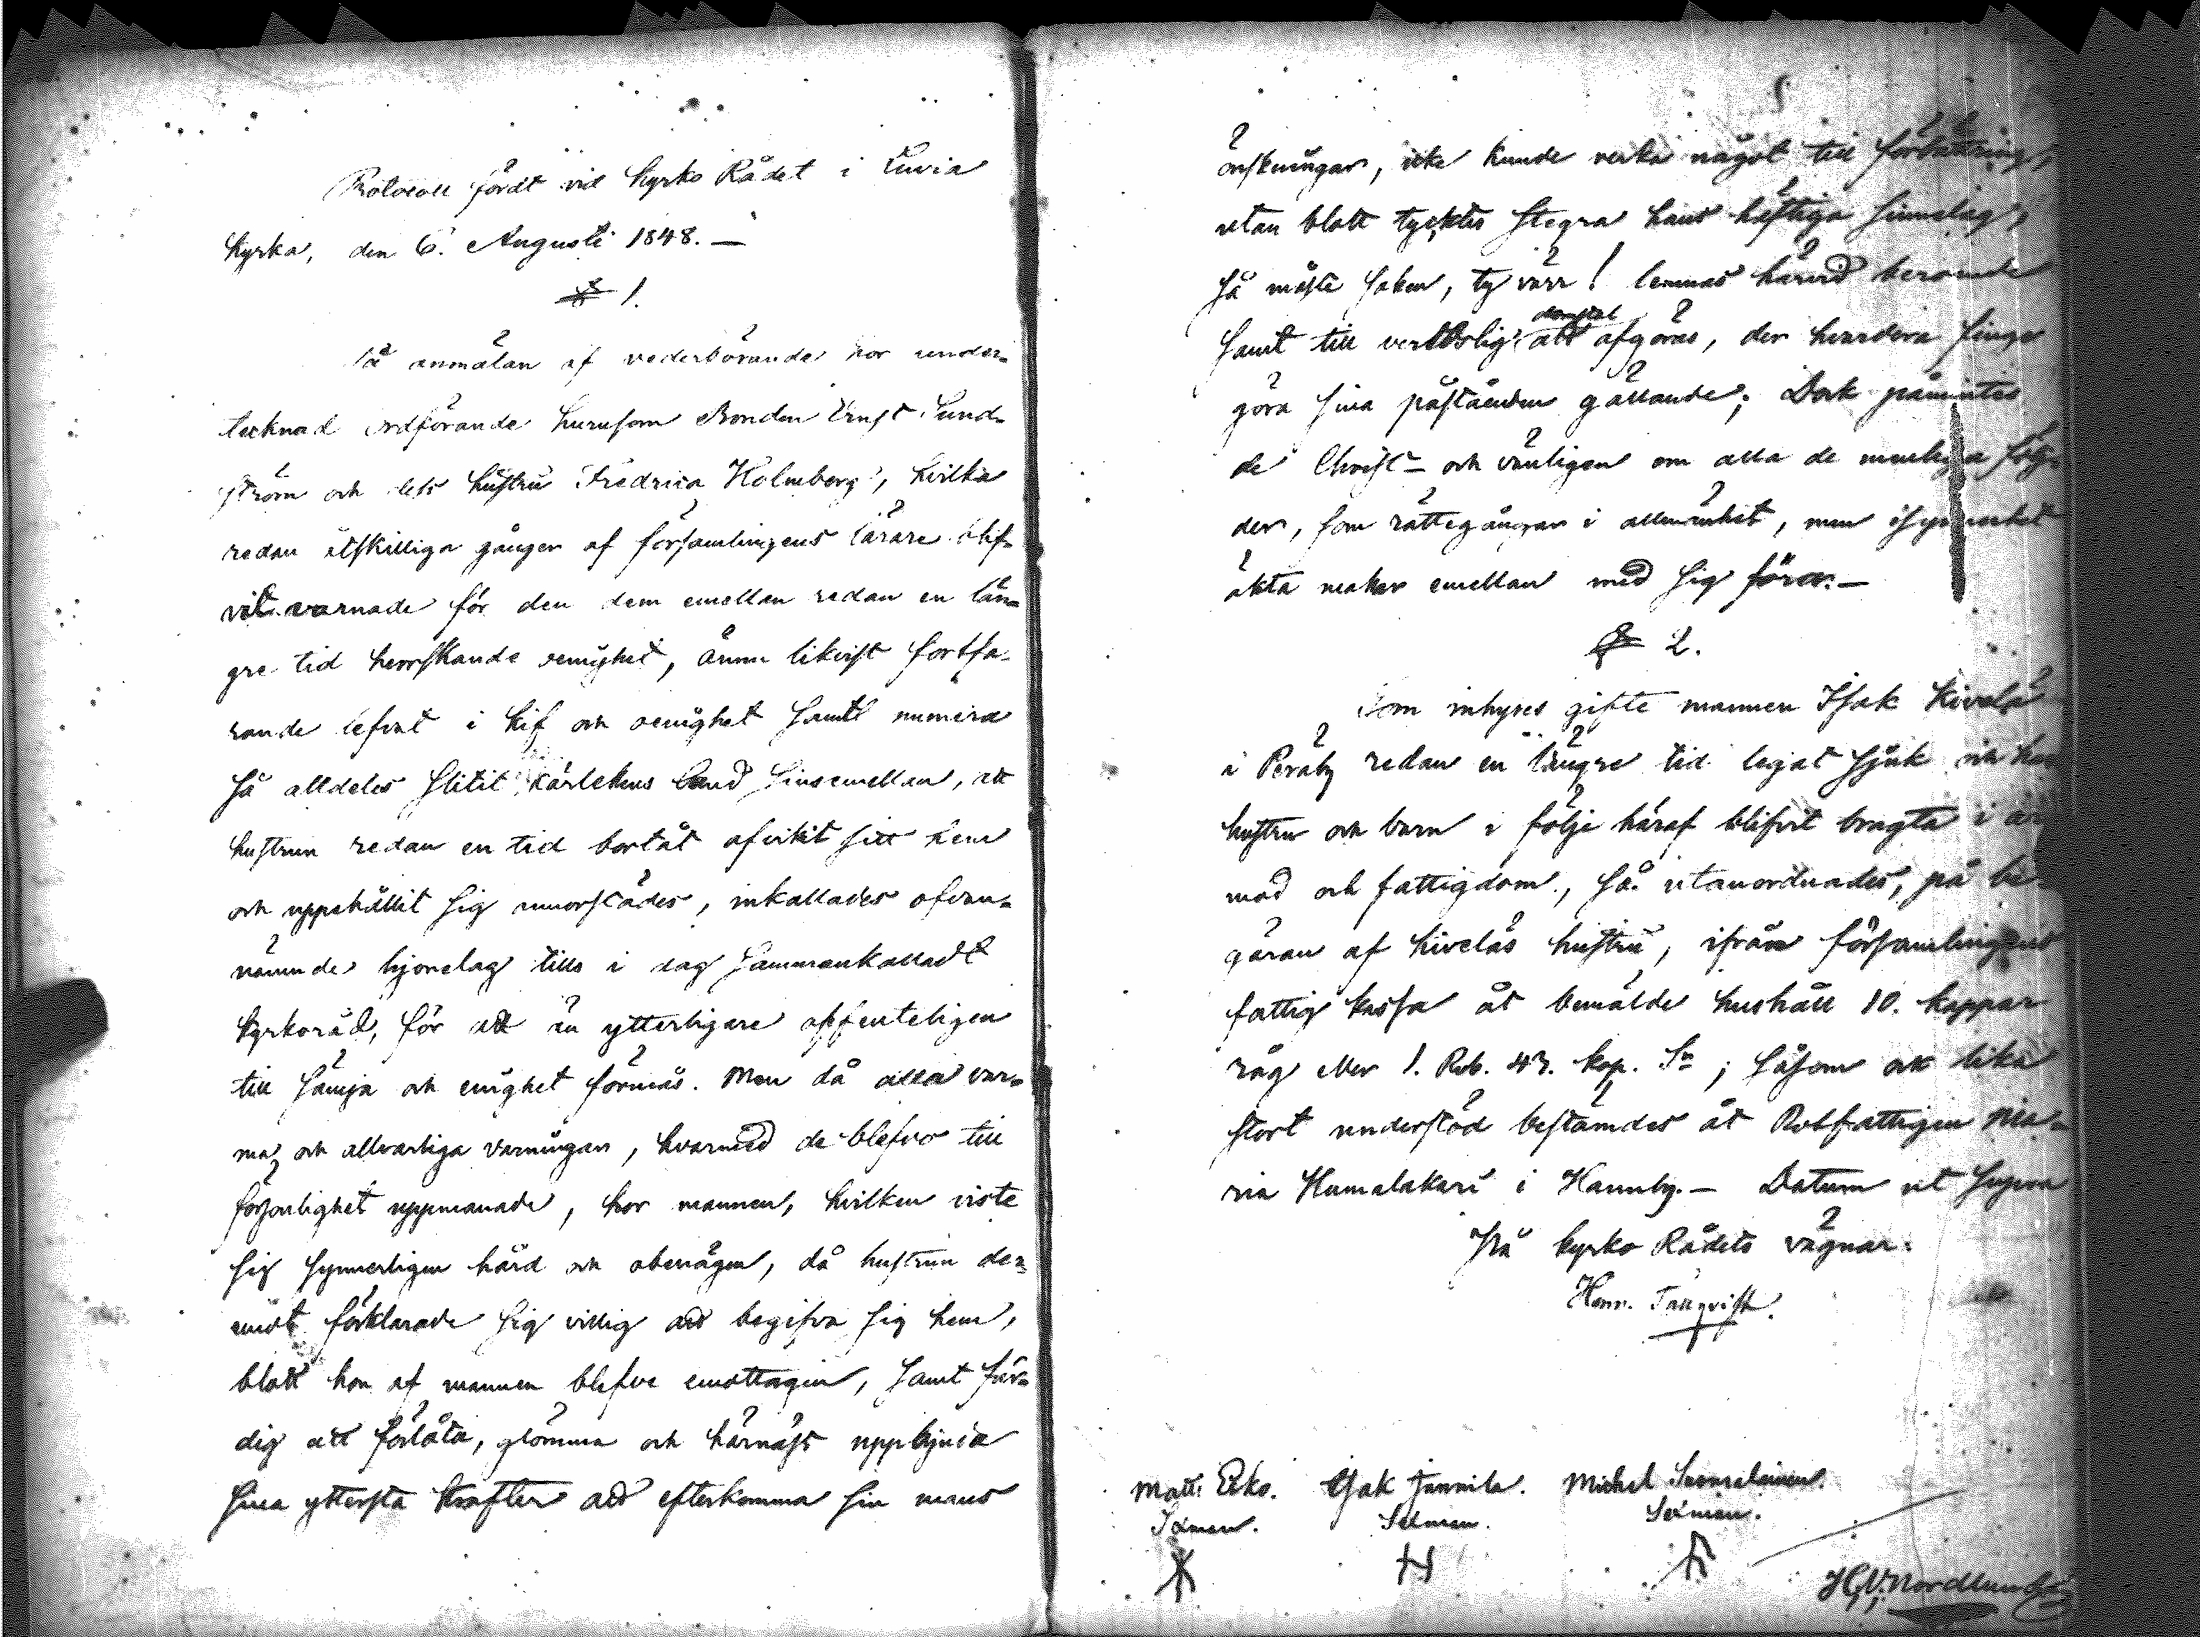 Protocoll fördt vid Kyrko Rådet i Luvia
Kyrka, den 6. Augusti 1848. —
§ 1.
På anmälan af vederbörande hos under-
tecknad ordförande hurusom Bonden Ernst Sund-
ström och dess hustru Fredrica Holmberg, hvilka
redan åtskilliga gånger af församlingens lärare blif-
vit varnade för den dem emellan redan en län-
gre tid herrskande oenighet, ännu likvist fortfa-
rande lefvat i kif och oenighet samt numera
så alldeles slitit kärlekens band sinsemellan, att
hustrun redan en tid bortåt afvikit sitt hem
och uppehållit sig annorstädes, inkallades ofvan-
nämnde hjonelag till i dag sammankalladt
kyrkoråd, för att än ytterligare offenteligen
till sämja och enighet förmås. Men då alla var-
ma och allvarliga varningar, hvarmed de blefvo till
försonlighet uppmanade, hos mannen, hvilken viste
sig synnerligen hård och obenägen, då hustrun der-
emot förklarade sig villig att begifva sig hem,
blott hon af mannen blefve emottagen, samt fär-
dig att förlåta, glömma och härnäst uppbjuda
sina yttersta krafter att efterkomma sin mans
önskningar, icke kunde verka något till förbättring,
utan blott tycktes stegra hans häftiga sinnelag,
så måste saken, ty värr! lemnas härvid beroende
samt till verldslig domstol att afgöras, der hvardera finge
göra sina påståenden gällande; Dock påmintes
de Christ- och vänligen om alla de menliga följ-
der, som rättegångar i allmänhet, men isynnerhet
äkta makar emellan med sig föra. —
§ 2.
Som inhyses gifte mannen Isak Kivelä
i Peräby redan en längre tid legat sjuk och hans
hustru och barn i följe häraf blifvit bragta i ar-
mod och fattigdom, så utanordnades, på be-
gäran af Kiveläs hustru, ifrån församlingens
fattig kassa åt bemälde hushåll 10. kappar
råg eller 1. Rub. 43. kop. Sr; såsom ock lika
stort understöd bestämdes åt Rotfattigen Ma-
ria Humalakari i Hannby. — Datum ut supra
På Kyrko Rådets vägnar:
Henr. Tallqvist.
Matt: Erko. Isak Jannila. Michel Suomalainen.
Sexman. Sexman. Sexman.
H. G. V. Nordlund